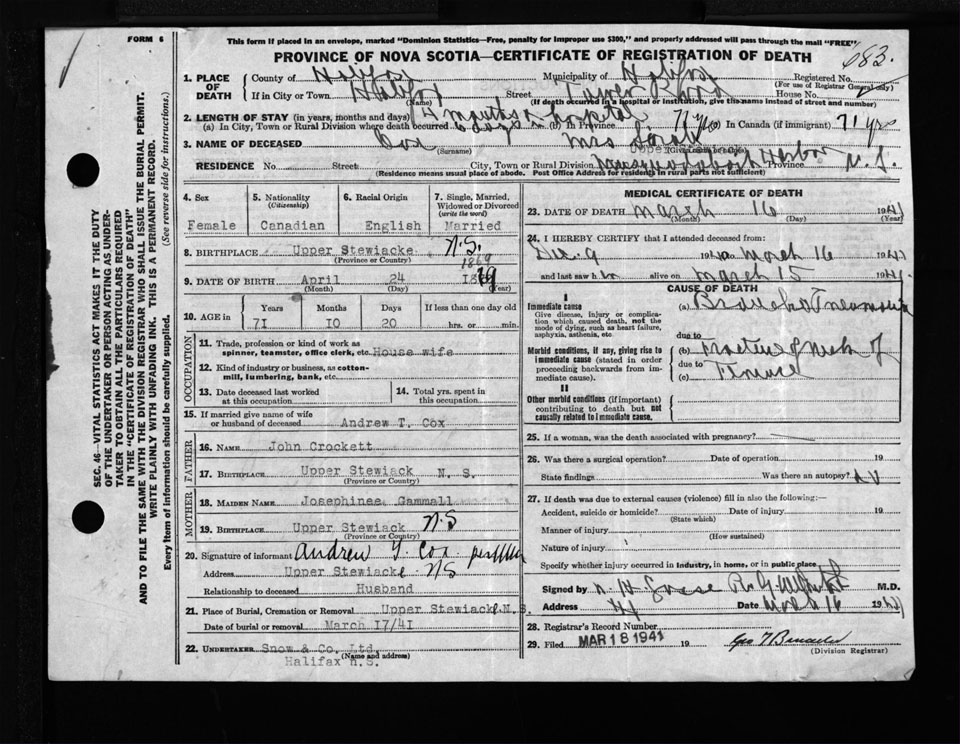 FORM 6
This form if placed in an envelope, marked "Dominion Statistics—Free, penalty for improper use $300," and properly addressed will pass through the mail "FREE"
PROVINCE OF NOVA SCOTIA—CERTIFICATE OF REGISTRATION OF DEATH
683.
SEC. 46—VITAL STATISTICS ACT MAKES IT THE DUTY
OF THE UNDERTAKER OR PERSON ACTING AS UNDER-
TAKER TO OBTAIN ALL THE PARTICULARS REQUIRED
IN THE "CERTIFICATE OF REGISTRATION OF DEATH"
AND TO FILE THE SAME WITH THE DIVISION REGISTRAR WHO SHALL ISSUE THE BURIAL PERMIT.
WRITE PLAINLY WITH UNFADING INK. THIS IS A PERMANENT RECORD.
Every item of information should be carefully supplied. (See reverse side for instructions.)
1. PLACE OF DEATH County of Halifax Municipality of Halifax Registered No.
(For use of Registrar General only)
If in City or Town Halifax Street Tower Road House No.
(Name) (If death occurred in a hospital or institution, give the name instead of street and number)
2. LENGTH OF STAY (in years, months and days)
(a) In City, Town or Rural Division where death occurred months hospital (b) In Province 71 yrs (c) In Canada (if immigrant) 71 yrs
3. NAME OF DECEASED Cox Mrs
(Surname) (Given
RESIDENCE No. Street City, Town or Rural Division Musquodoboit Harbor Province N.S.
(Residence means usual place of abode. Post Office Address for residents in rural parts not sufficient)
4. Sex 5. Nationality (Citizenship) 6. Racial Origin 7. Single, Married, Widowed or Divorced (write the word)
Female Canadian English Married
8. BIRTHPLACE Upper Stewiacke N.S.
(Province or Country)
1869
9. DATE OF BIRTH April 24
(Month) (Day) (Year)
10. AGE in Years Months Days If less than one day old
71 10 20 hrs. or min.
OCCUPATION
11. Trade, profession or kind of work as
spinner, teamster, office clerk, etc. House wife
12. Kind of industry or business, as cotton-
mill, lumbering, bank, etc.
13. Date deceased last worked at this occupation 14. Total yrs. spent in this occupation
15. If married give name of wife
or husband of deceased Andrew T. Cox
FATHER
16. NAME John Crockett
17. BIRTHPLACE Upper Stewiack N. S.
(Province or Country)
MOTHER
18. MAIDEN NAME Josephinee Gammall
19. BIRTHPLACE Upper Stewiack N.S
(Province or Country)
20. Signature of informant Andrew T. Cox
Address Upper Stewiacke NS
Relationship to deceased Husband
21. Place of Burial, Cremation or Removal Upper Stewiacke N.S.
Date of burial or removal March 17/41
22. UNDERTAKER Snow & Co. Ltd.
(Name and address)
Halifax N.S.
MEDICAL CERTIFICATE OF DEATH
23. DATE OF DEATH March 16 1941
(Month) (Day) (Year)
24. I HEREBY CERTIFY that I attended deceased from:
Dec. 9 1940 to March 16 1941
and last saw h er alive on March 15 1941.
CAUSE OF DEATH
I
Immediate cause
Give disease, injury or complica-
tion which caused death, not the
mode of dying, such as heart failure,
asphyxia, asthenia, etc.
(a) Broncho Pneumonia
due to
Morbid conditions, if any, giving rise to
immediate cause (stated in order
proceeding backwards from im-
mediate cause).
(b) Fracture of neck of
due to
(c) Femur
II
Other morbid conditions (if important)
contributing to death but not
causally related to immediate cause.
25. If a woman, was the death associated with pregnancy?
26. Was there a surgical operation? Date of operation 19
State findings Was there an autopsy?
27. If death was due to external causes (violence) fill in also the following:—
Accident, suicide or homicide? Date of injury 19
(State which)
Manner of injury
(How sustained)
Nature of injury
Specify whether injury occurred in industry, in home, or in public place
Signed by M.D.
Address Hfx Date March 16 1941
28. Registrar's Record Number
29. Filed MAR 18 1941 19
(Division Registrar)